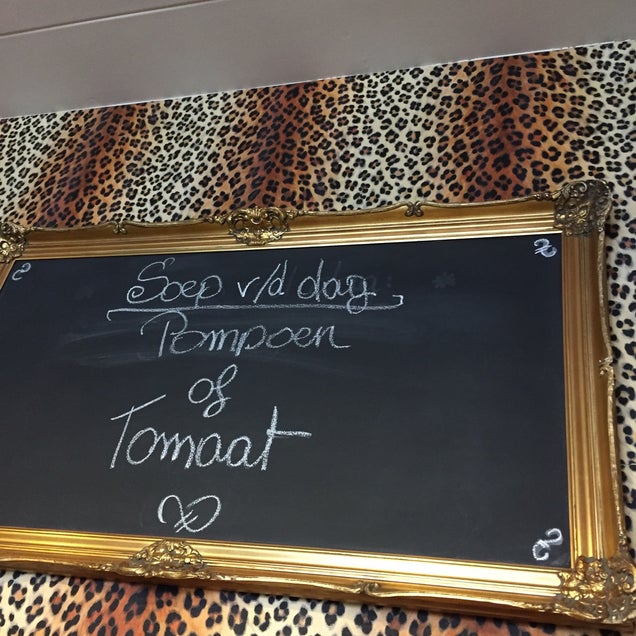 Soep v/d dag
Pompoen
of
Tomaat